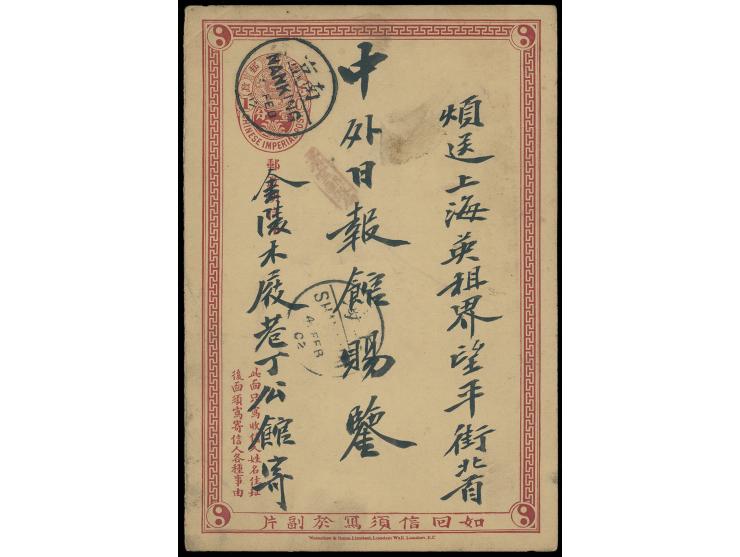 煩送上海英租界望平街北首
中外日報館賜鑒
金陵木廠巷丁公館寄
南京
NANKING
FEB
CHINESE IMPERIAL POST
郵
SH
4 FEB
02
此面只寫收信人姓名住址
後面須寫寄信人各種事由
片副於寫須信回如
Waterlow & Sons, Limited, London Wall, London, E.C.